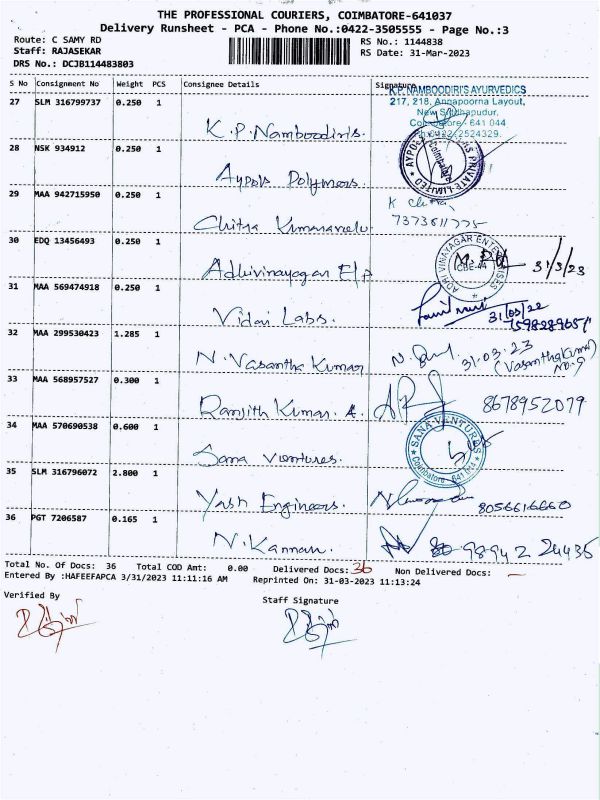 THE PROFESSIONAL COURIERS, COIMBATORE-641037
Delivery Runsheet - PCA - Phone No.:0422-3505555 - Page No.:3
Route: C SAMY RD
RS No.: 1144838
Staff: RAJASEKAR
RS Date: 31-Mar-2023
DRS No.: DCJB114483803
S No Consignment No Weight PCS Consignee Details Signature
27 SLM 316799737 0.250 1
K.P. Namboodiris.
K.P. NAMBOODIRI'S AYURVEDICS
217, 218, Annapoorna Layout,
New Siddhapudur,
Coimbatore - 641 044
Ph:0422-2524329.
28 NSK 934912 0.250 1
Aypols Polymers
PRIVATE LIMITED
Coimbatore
29 MAA 942715950 0.250 1
Chitra Kumaravelu
K Chitra,
7373611775
30 EDQ 13456493 0.250 1
Adhivinayagar E/P
ADRI VINAYAGAR ENTERPRISES
CBE-44
31/3/23
31 MAA 569474918 0.250 1
Vidai Labs.
31/03/22
32 MAA 299530423 1.285 1
N. Vasantha Kumar
31.03.23
(Vasanthakumar)
33 MAA 568957527 0.300 1
Ranjith Kumar. A.
8678952079
34 MAA 570690538 0.600 1
Sana Ventures.
SANA VENTURES
Coimbatore - 641 044
35 SLM 316796072 2.800 1
Yash Engineers.
8056616660
36 PGT 7206587 0.165 1
N. Kannan.
98942 24435
Total No. Of Docs: 36 Total COD Amt: 0.00 Delivered Docs: 36 Non Delivered Docs: —
Entered By :HAFEEFAPCA 3/31/2023 11:11:16 AM Reprinted On: 31-03-2023 11:13:24
Verified By
Staff Signature